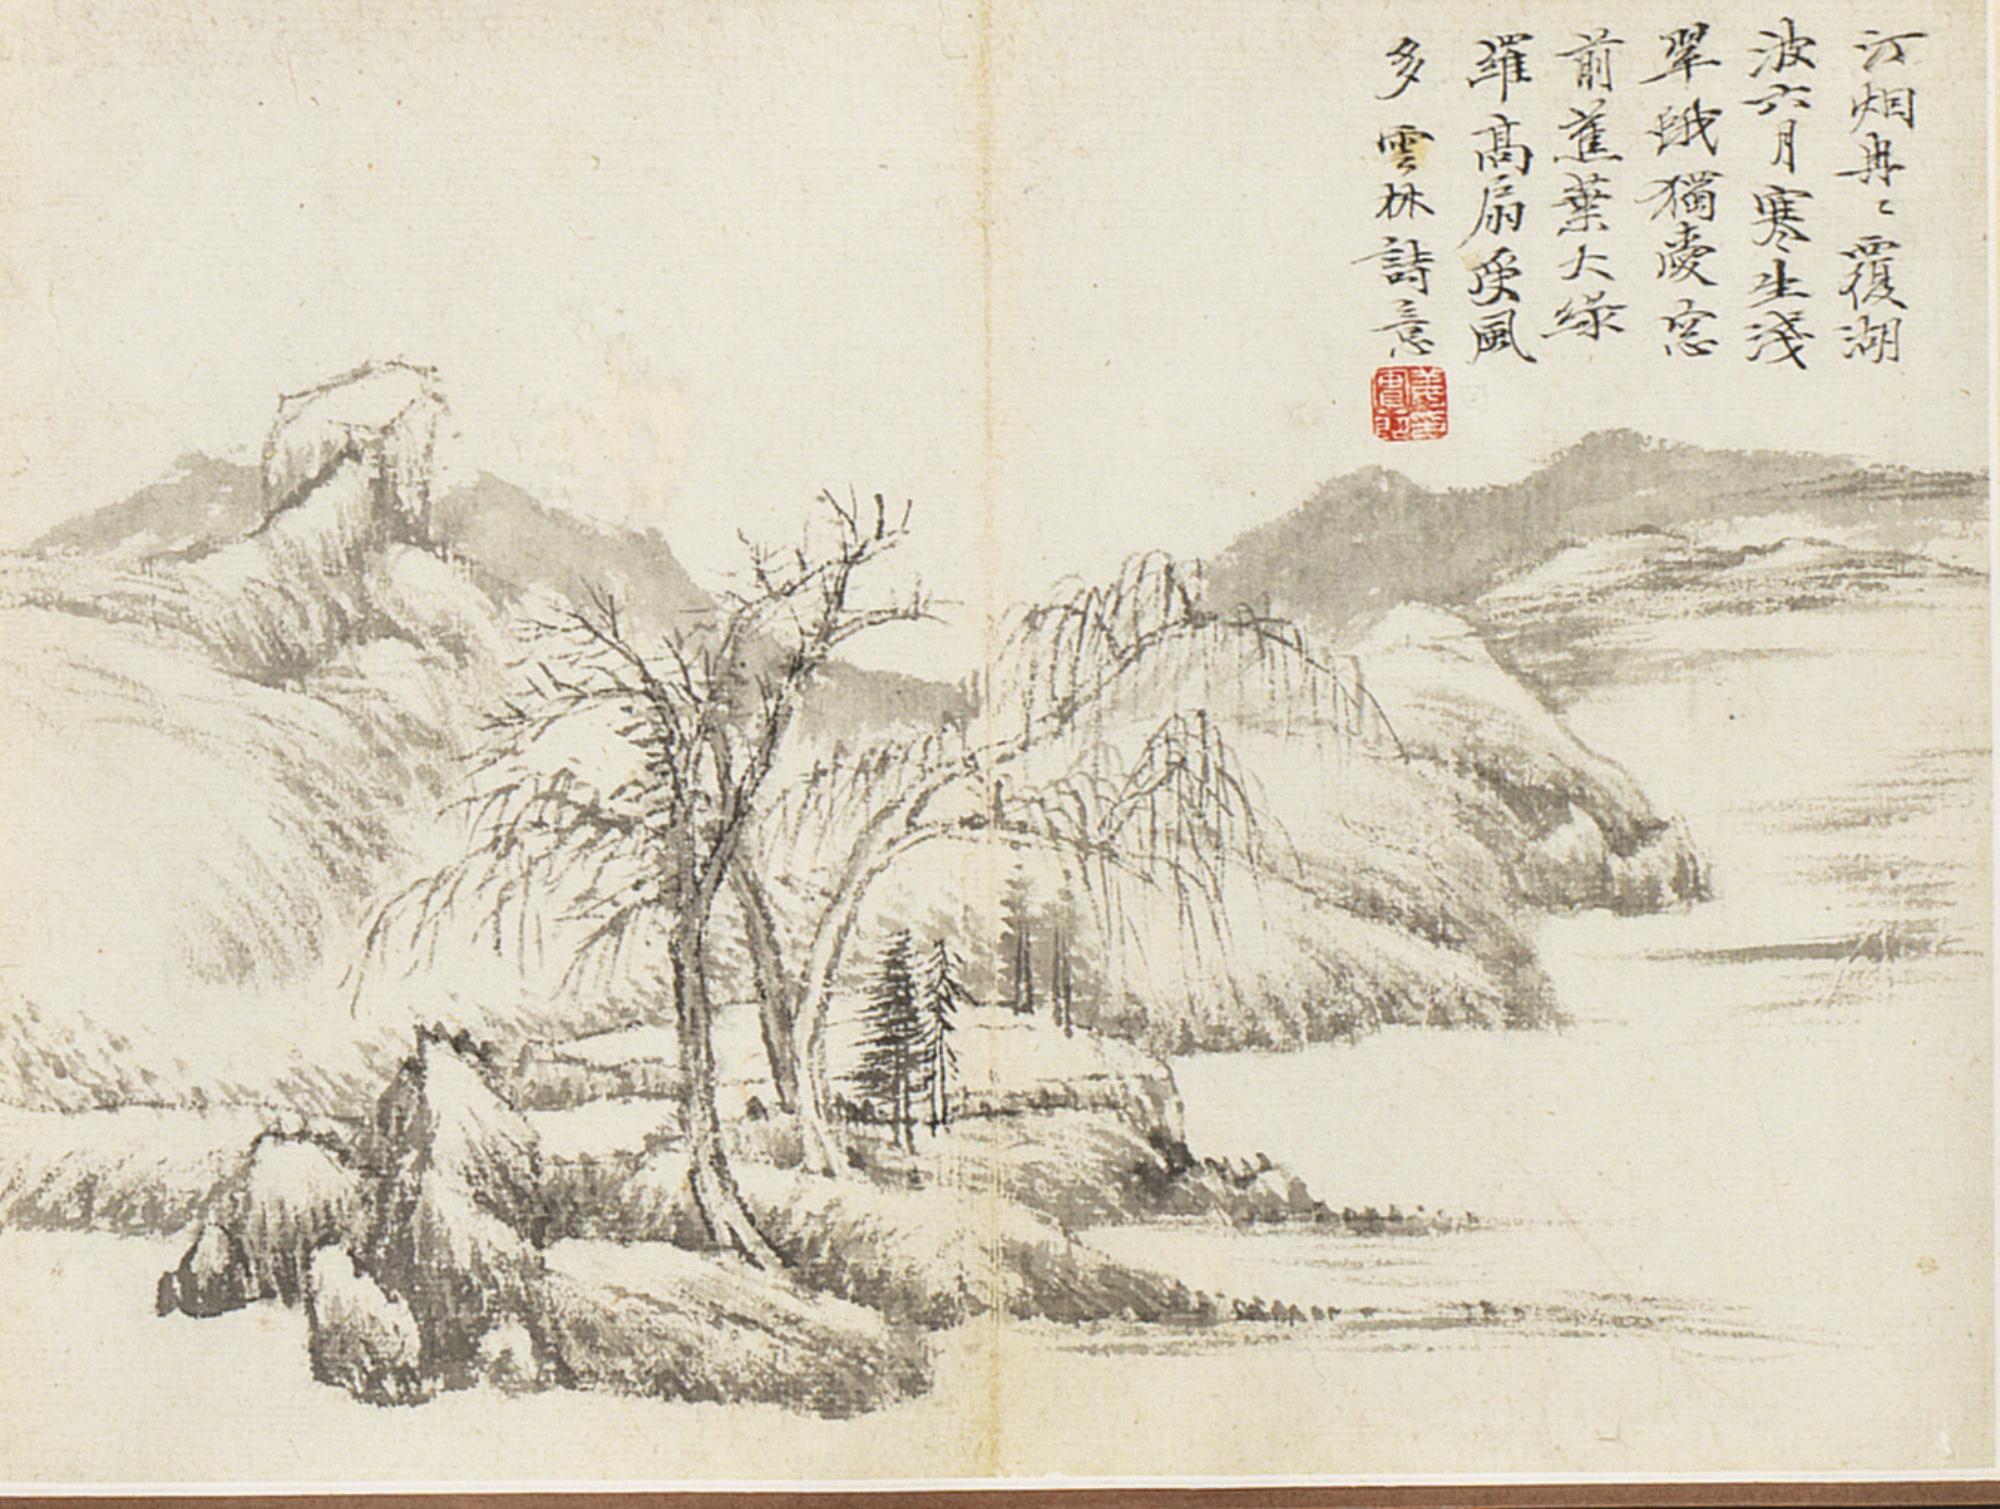 汀烟冉〻覆湖
波六月寒生淺
翠蛾獨愛窓
前蕉葉大綠
羅高扇受風
多 雲林詩意